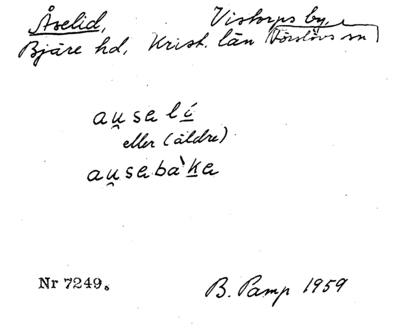 Åselid, Vistorps by,
Bjäre hd, Krist. län Förslövs sn
au̯selí
eller (äldre)
au̯sebàke
Nr 7249.
B. Pamp 1959